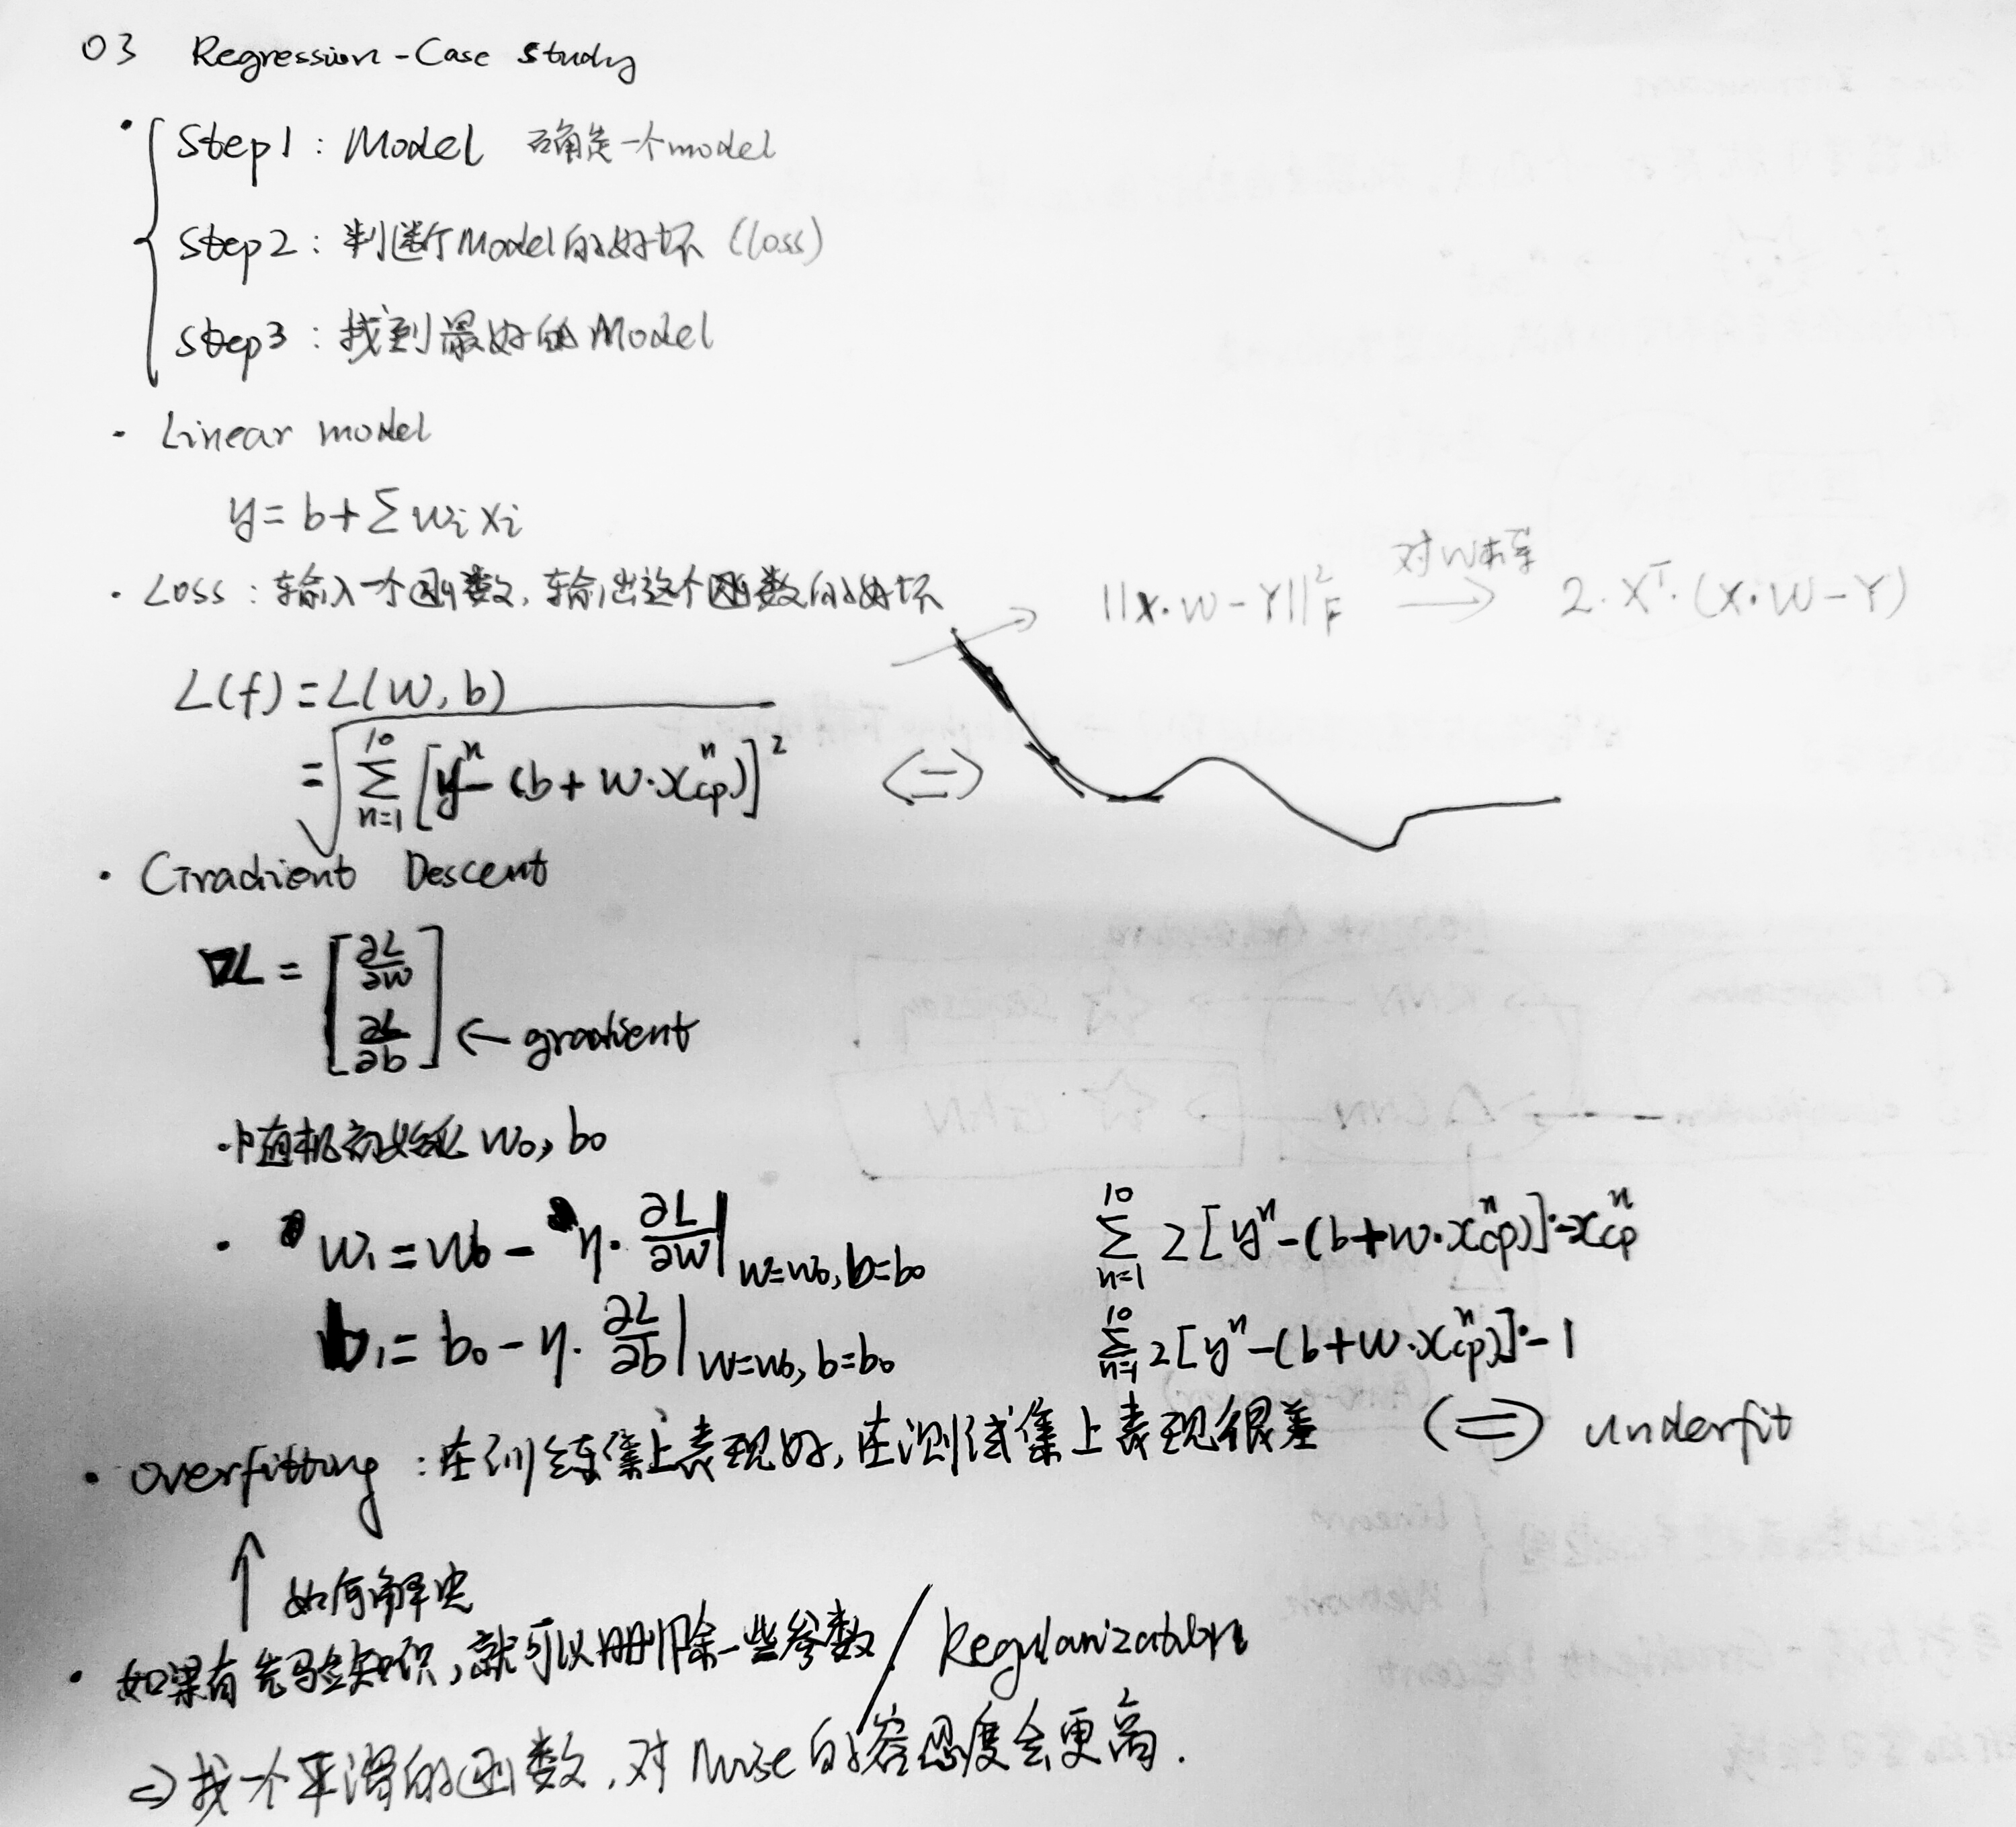 03 Regression-Case study
· Step1: Model 确定一个model
Step2: 判断Model的好坏 (loss)
Step3: 找到最好的Model
· Linear model
y = b + Σ wi xi
· Loss: 输入一个函数, 输出这个函数的好坏
||X·W - Y||²F 对W求导 → 2·Xᵀ·(X·W - Y)
L(f) = L(w, b)
= √ Σ n=1 10 [yⁿ - (b + w·xⁿcp)]² <=>
· Gradient Descent
∇L = [∂L/∂w ∂L/∂b] ← gradient
· 随机初始化 w0, b0
· w1 = w0 - η· ∂L/∂w | w=w0, b=b0 Σ n=1 10 2[yⁿ - (b + w·xⁿcp)]·-xⁿcp
b1 = b0 - η· ∂L/∂b | w=w0, b=b0 Σ n=1 10 2[yⁿ - (b + w·xⁿcp)]·-1
· overfitting: 在训练集上表现好, 在测试集上表现很差 <=> underfit
↑ 如何解决
· 如果有先验知识, 就可以删除一些参数 / Regularization
=> 找一个平滑的函数, 对Noise的容忍度会更高.